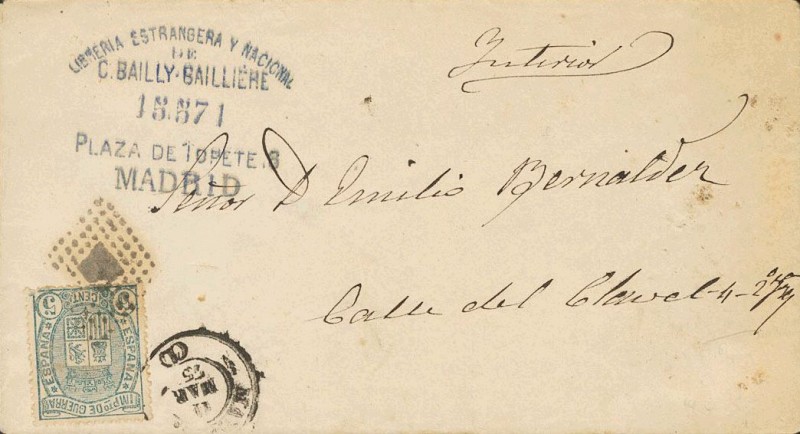 LIBRERIA ESTRANGERA Y NACIONAL
DE
C. BAILLY-BAILLIÈRE
PLAZA DE TOPETE, 8
MADRID
Interior
Señor D Emilio Bernaldez
Calle del Clavel-4-2º
5 CENT. 5
ESPAÑA
ESPAÑA
IMPTO DE GUERRA
MAR
75
(1)